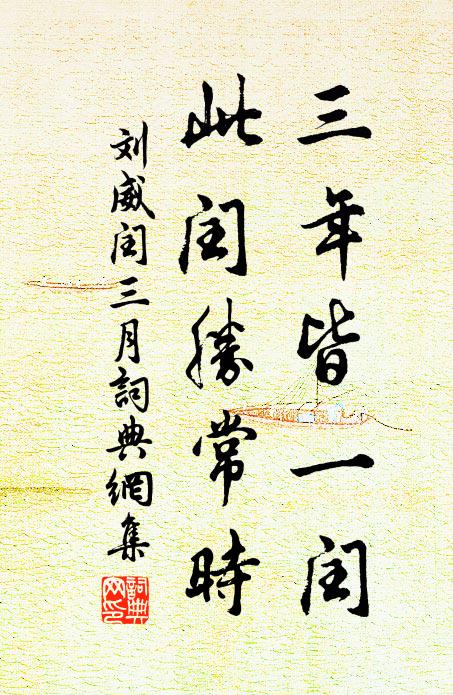 三年皆一闰
此闰勝常時
刘威闰三月詞典網集
詞典网印